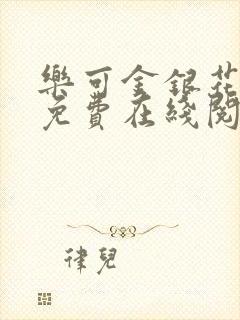 樂可金銀花
免費在綫閱
律兒